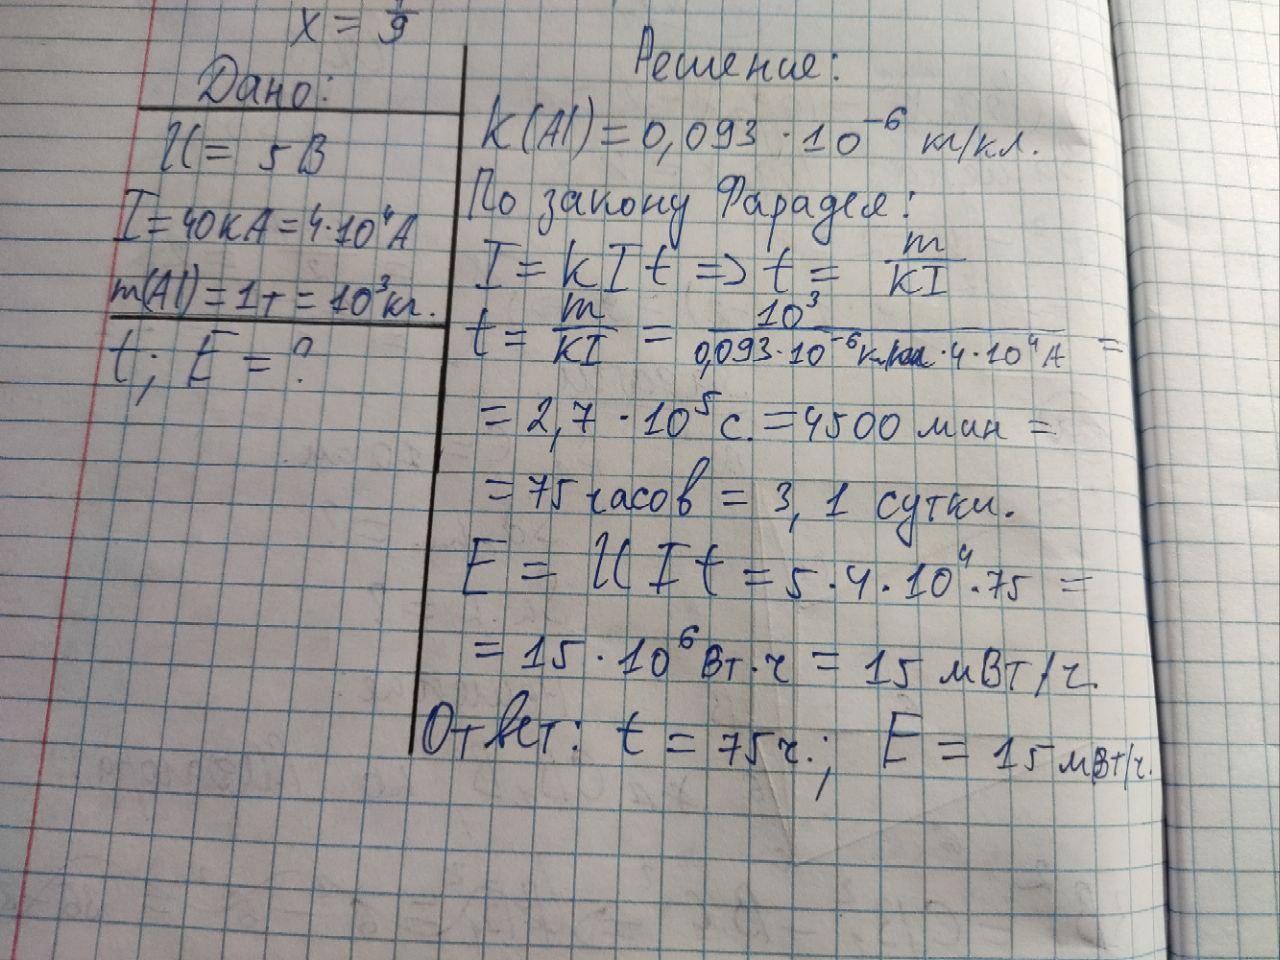 x = 1/9
Дано:
U = 5 В
I = 40 кА = 4·10⁴ А
m(Al) = 1 т = 10³ кг.
t; E = ?
Решение:
k(Al) = 0,093 · 10⁻⁶ кг/кл.
По закону Фарадея:
I = k I t => t = m/KI
t = m/KI = 10³/0,093·10⁻⁶ кг/кл·4·10⁴ А =
= 2,7 · 10⁵ с. = 4500 мин =
= 75 часов = 3,1 сутки.
E = U I t = 5·4·10⁴·75 =
= 15·10⁶ Вт·ч = 15 мВт/ч.
Ответ: t = 75 ч.; E = 15 мВт/ч.